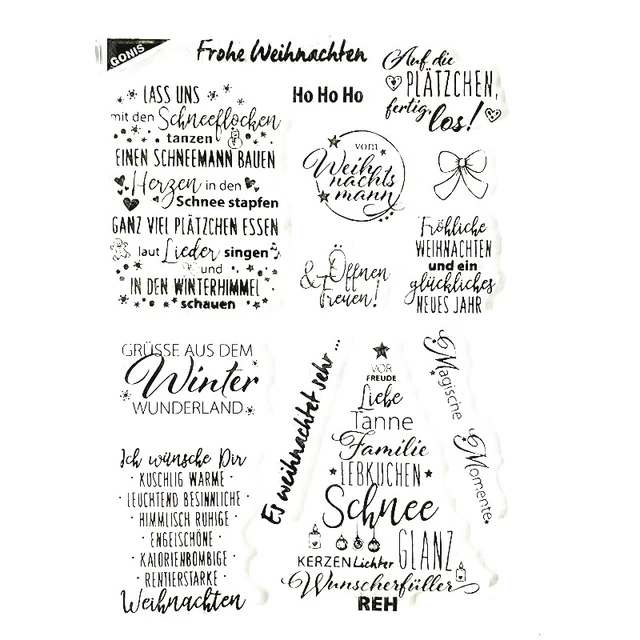 GONIS
Frohe Weihnachten
Auf die
PLÄTZCHEN,
fertig,
los!
LASS UNS
mit den Schneeflocken
tanzen
EINEN SCHNEEMANN BAUEN
Herzen in den
Schnee stapfen
GANZ VIEL PLÄTZCHEN ESSEN
laut Lieder singen
und
IN DEN WINTERHIMMEL
schauen
Ho Ho Ho
vom
Weih
nachts
mann
Öffnen
& Freuen!
Fröhliche
WEIHNACHTEN
und ein
glückliches
NEUES JAHR
GRÜSSE AUS DEM
Winter
WUNDERLAND
Ich wünsche Dir
· KUSCHLIG WARME ·
· LEUCHTEND BESINNLICHE ·
· HIMMLISCH RUHIGE ·
· ENGELSCHÖNE ·
· KALORIENBOMBIGE ·
· RENTIERSTARKE ·
Weihnachten
Es weihnachtet sehr ...
VOR
FREUDE
Liebe
Tanne
Familie
LEBKUCHEN
Schnee
KERZEN Lichter GLANZ
Wunscherfüller
REH
Magische
Momente